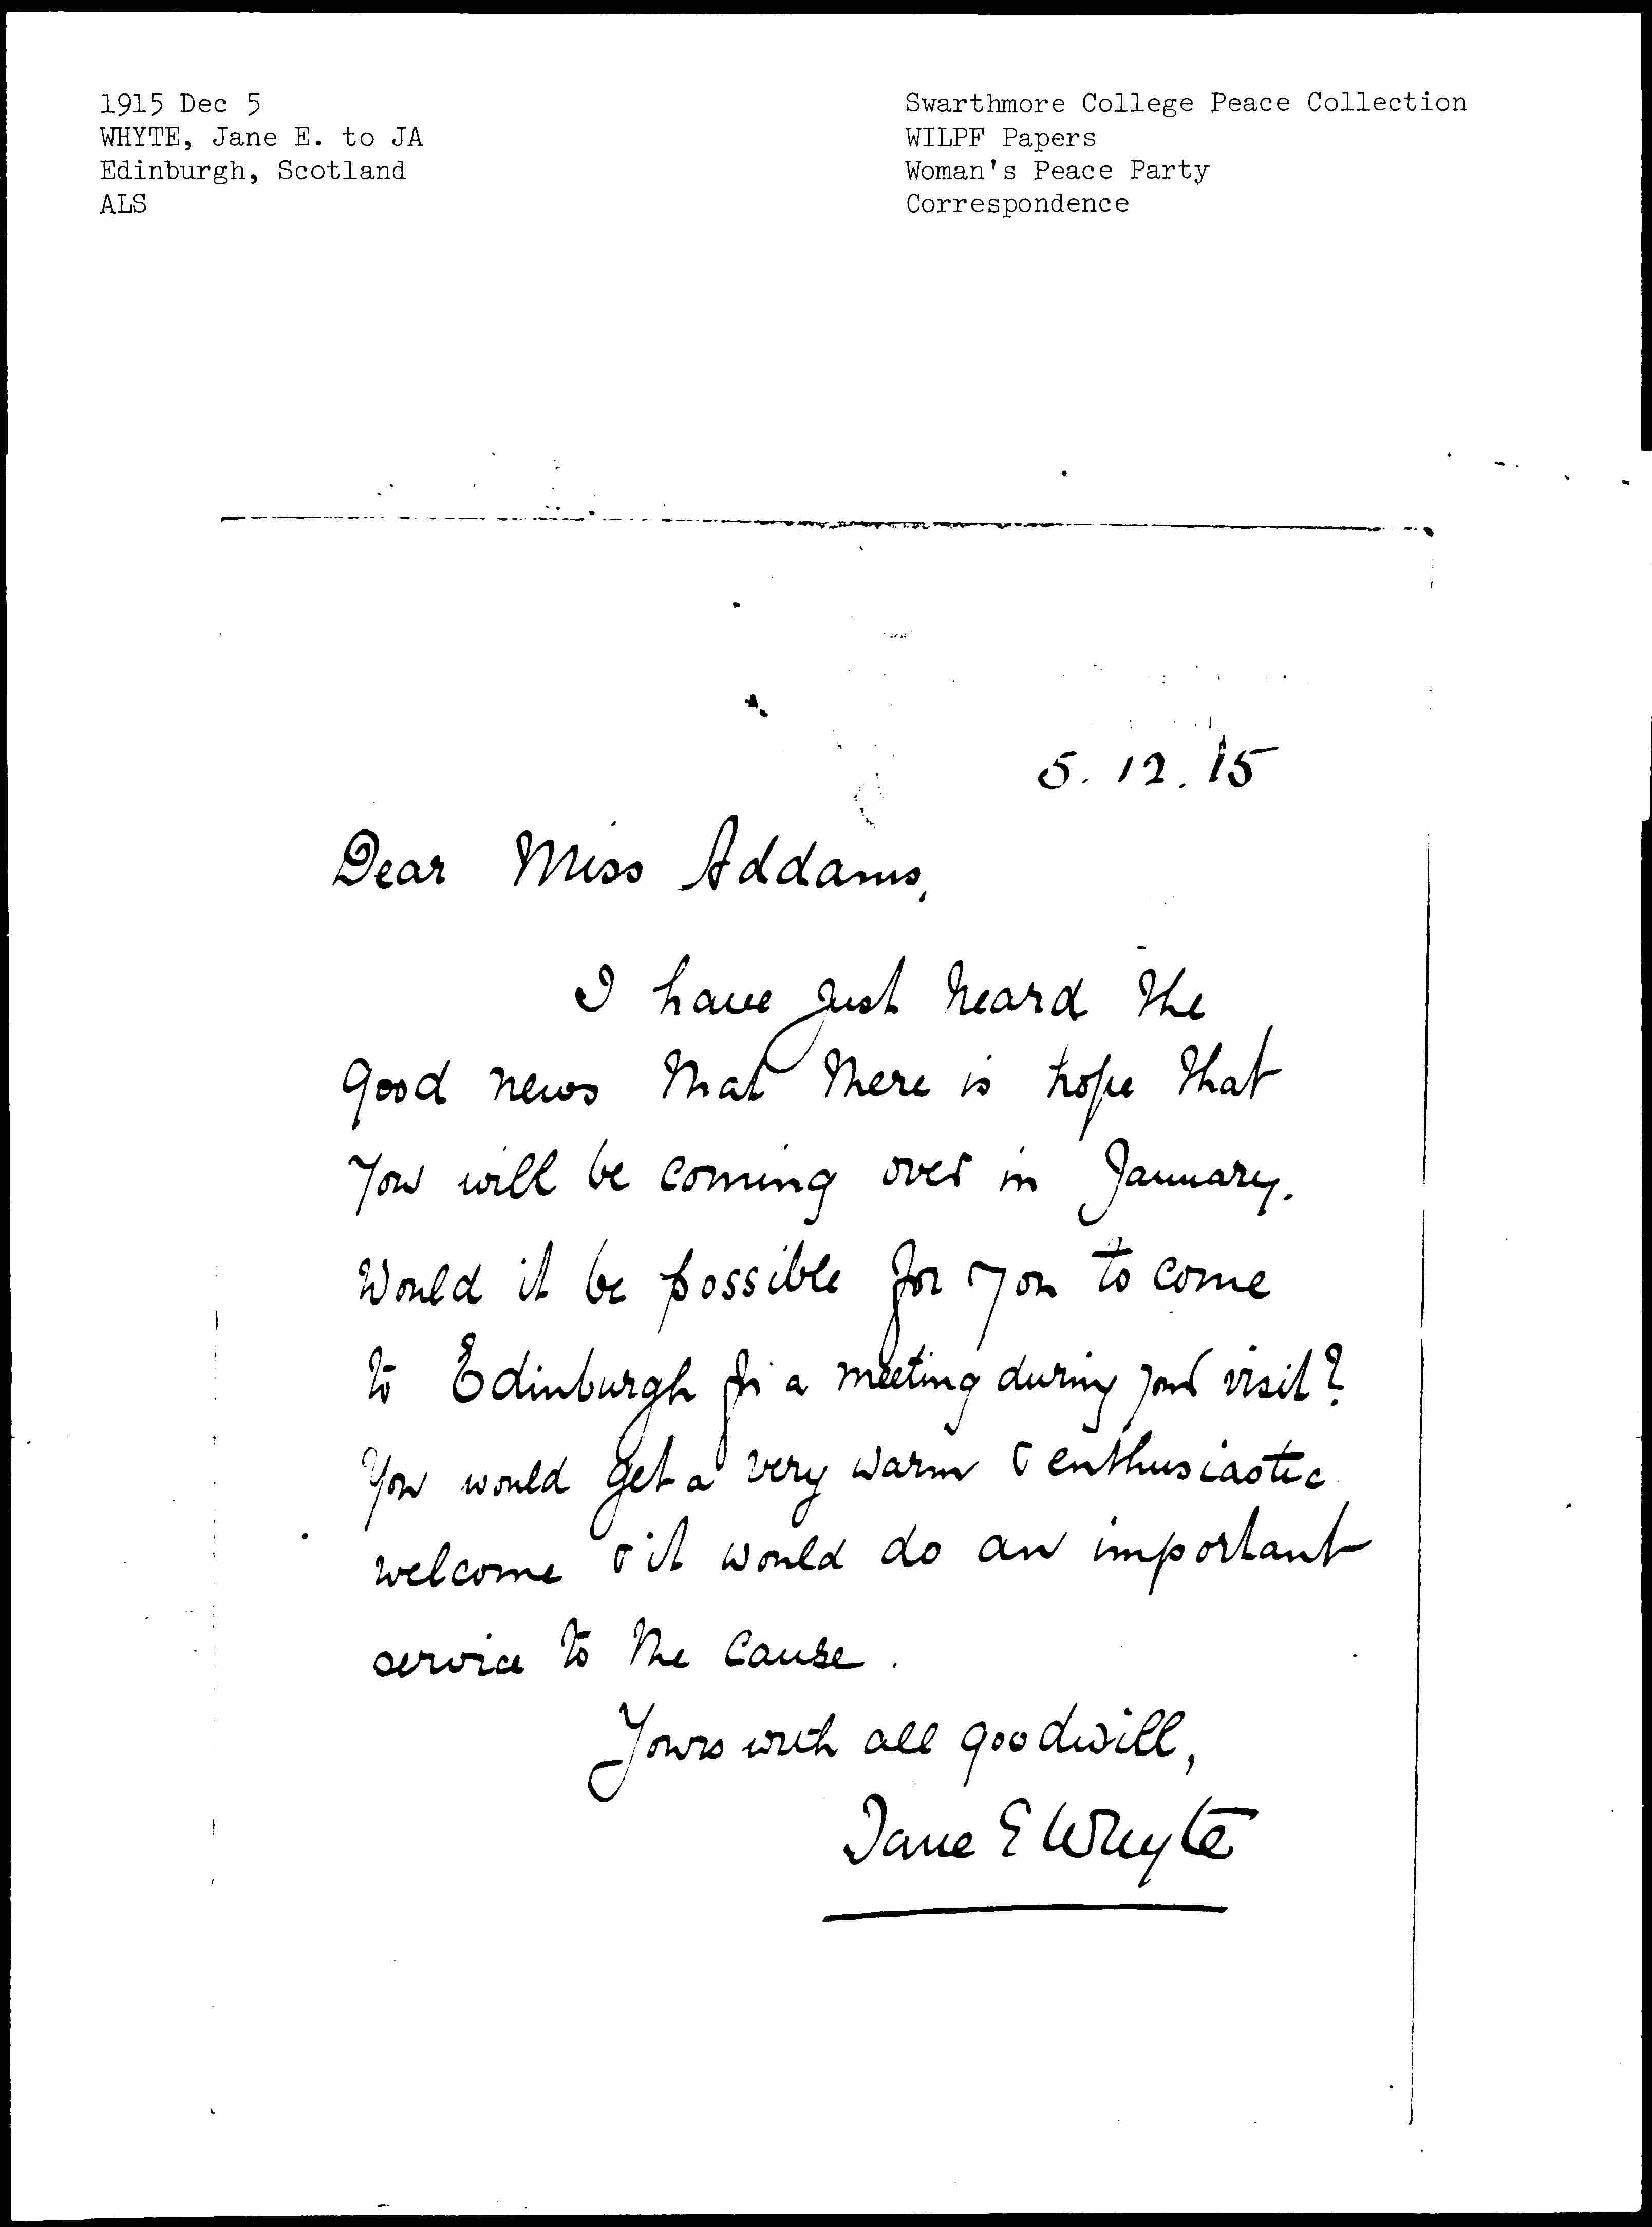 1915 Dec 5
WHYTE, Jane E. to JA
Edinburgh, Scotland
ALS
Swarthmore College Peace Collection
WILPF Papers
Woman's Peace Party
Correspondence
5. 12. 15
Dear Miss Addams,
I have just heard the
good news that there is hope that
you will be coming over in January.
Would it be possible for you to come
to Edinburgh for a meeting during your visit?
You would get a very warm & enthusiastic
welcome & it would do an important
service to the cause.
Yours with all goodwill,
Jane E Whyte